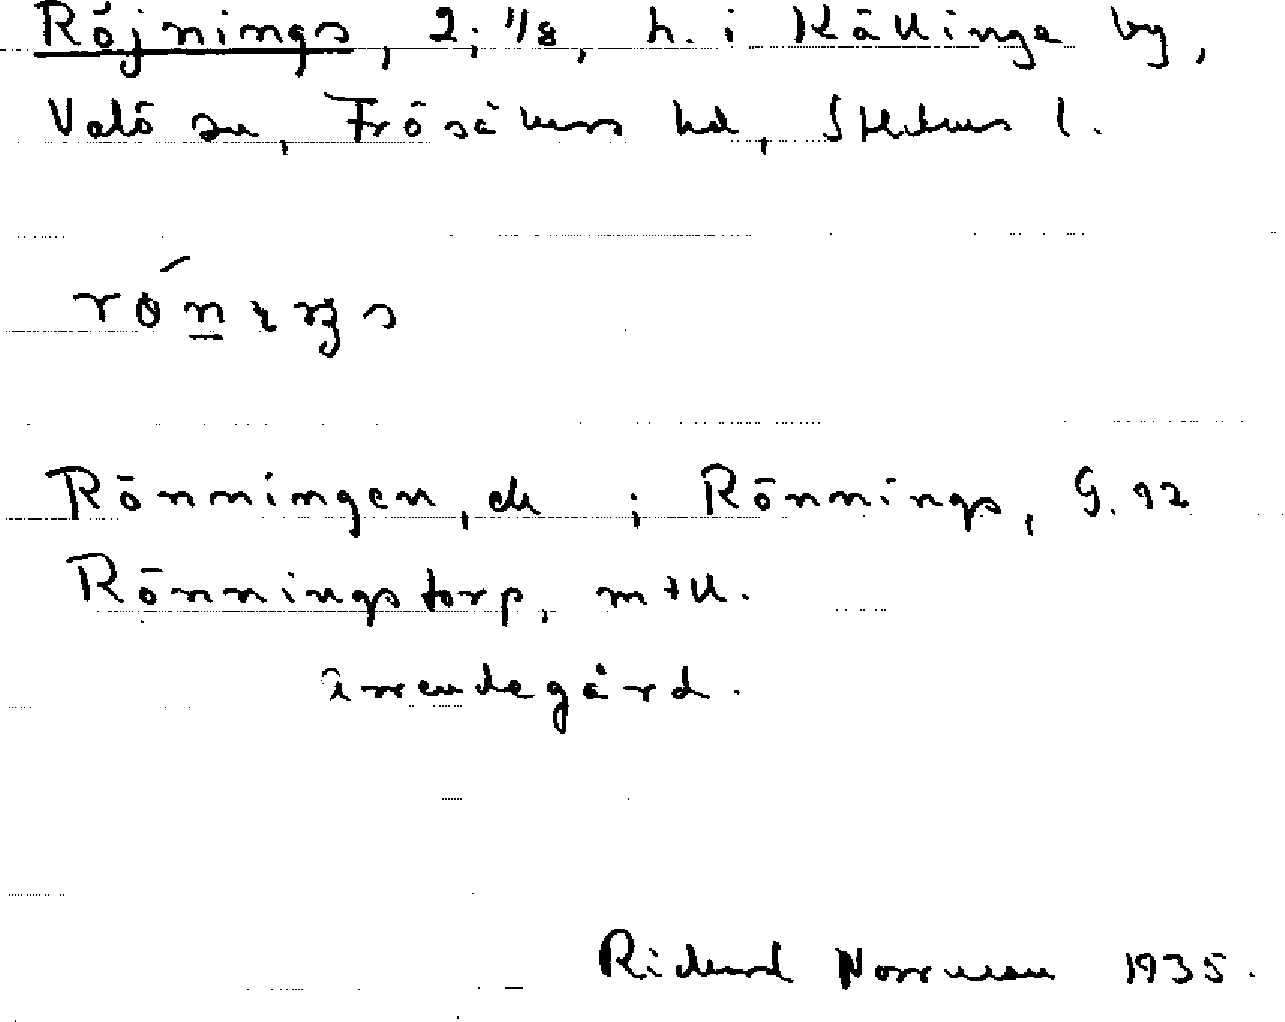 Röjnings, 2; 1/8, h. i Källinga by,
Valö sn, Frösåkers hd, Sthlms l.
rǿnıŋs
Rönningen, ek ; Rönnings, G. 92
Rönningstorp, mtll.
arrendegård.
Rickard Norrman 1935.